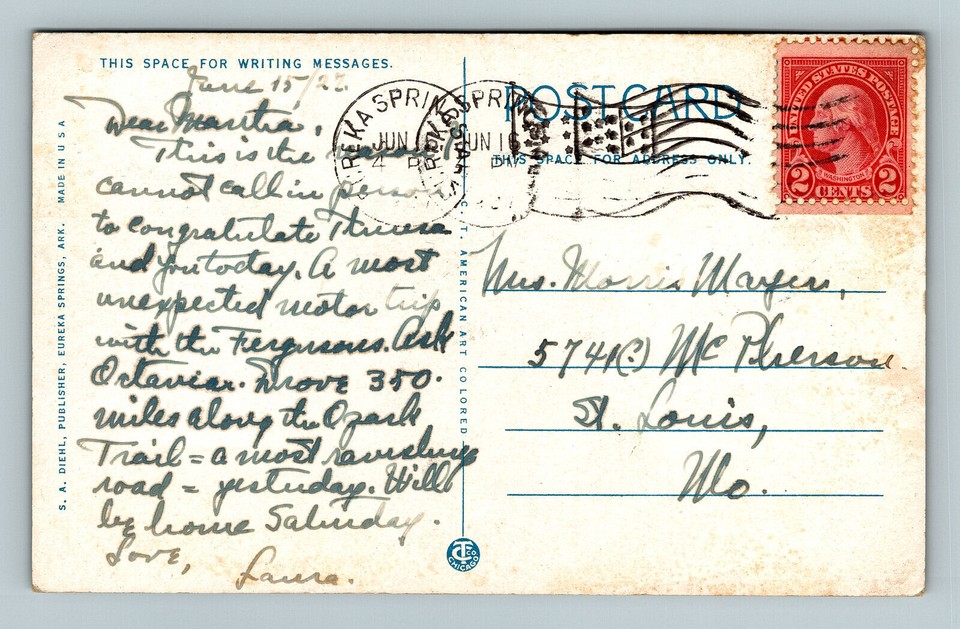 THIS SPACE FOR WRITING MESSAGES.
June 15/
Dear Martha,
This is the
cannot call in person
to congratulate Theresa
and you today. A most
unexpected motor trip
with the Fergusons. Ask
Octavia. Drove 350.
miles along the Ozark
Trail = a most ravishing
road = yesterday. Will
be home Saturday.
Love,
Laura.
S. A. DIEHL, PUBLISHER, EUREKA SPRINGS, ARK. MADE IN U S A
C. T. AMERICAN ART COLORED
C T CO
CHICAGO
POST CARD
THIS SPACE FOR ADDRESS ONLY.
EUREKA SPRINGS
ARK
JUN
4 P
EUREKA SPRINGS
ARK
JUN
PM
UNITED STATES POSTAGE
WASHINGTON
2 CENTS 2
Mrs. Morris Mayers,
5741(?) McPherson
St. Louis,
Mo.